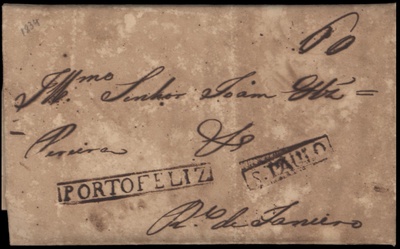 1838
60
Illmo Senhor Joam
Pereira &
PORTOFELIZ
S.PAULO
Rio de Janeiro